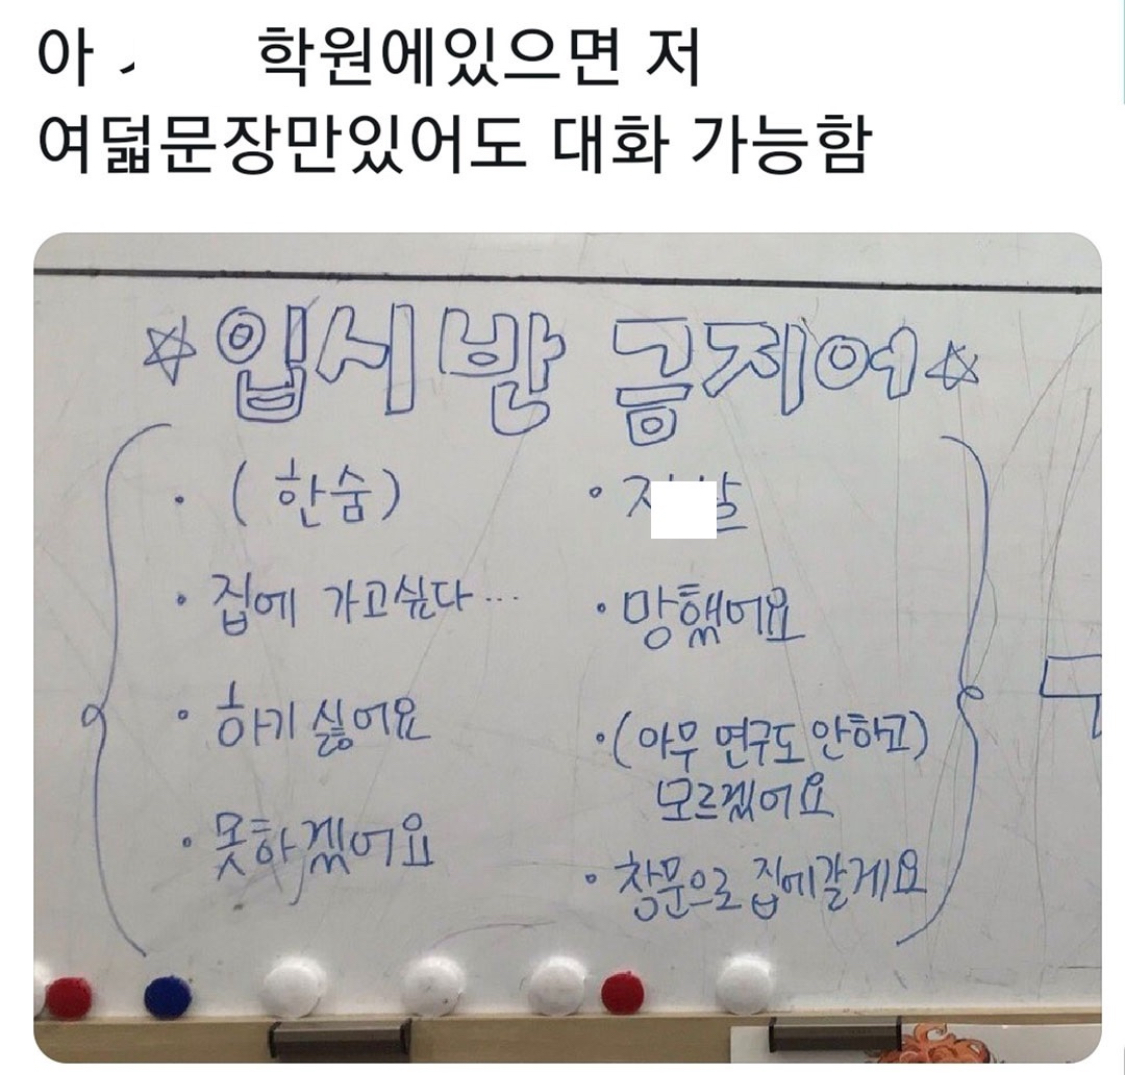 아 학원에있으면 저
여덟문장만있어도 대화 가능함
☆입시반 금지어☆
· (한숨)
· 집에 가고싶다...
· 하기 싫어요
· 못하겠어요
· 망했어요
· (아무 연구도 안하고)
모르겠어요
· 창문으로 집에갈게요